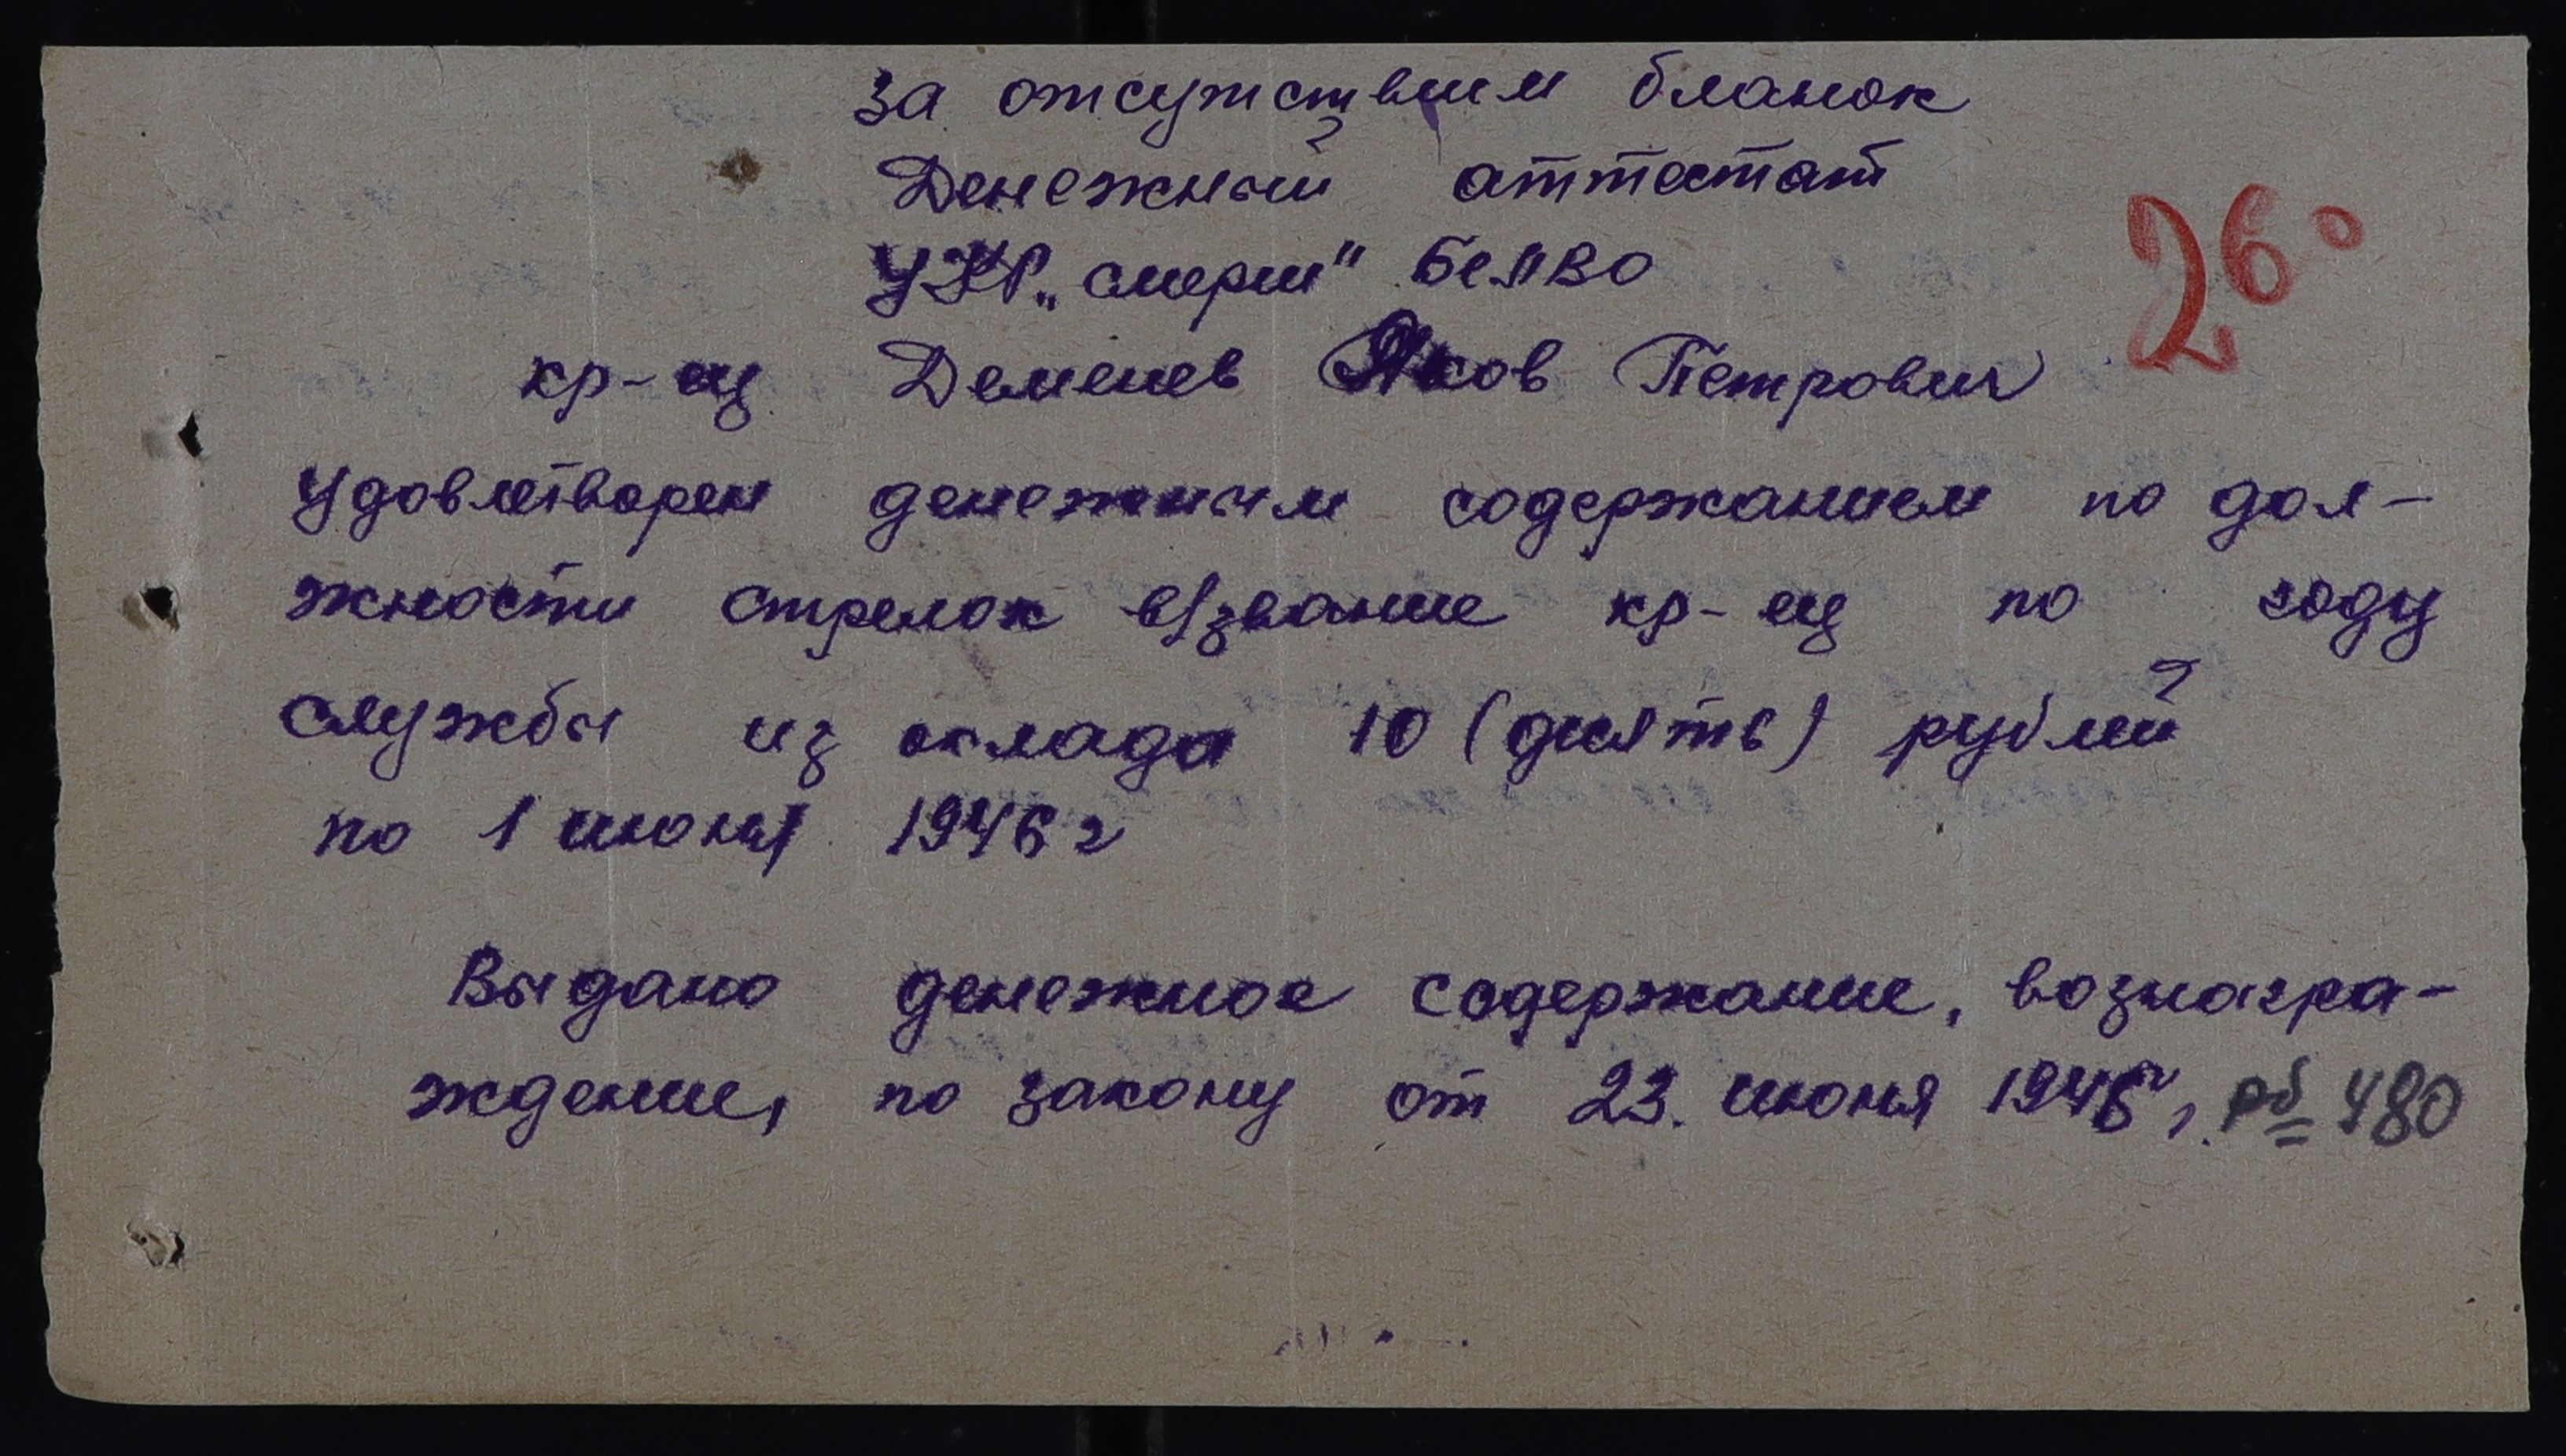 за отсутствием бланок
Денежный аттестат
УКР „смерш" БелВО
26°
кр-ец Деменев Яков Петрович
Удовлетворен денежным содержанием по дол-
жности стрелок в/звание кр-ец по году
службы из оклада 10 (десять) рублей
по 1 июня 1946 г
Выдано денежное содержание, вознагра-
ждение, по закону от 23. июня 1945 г. рб 480